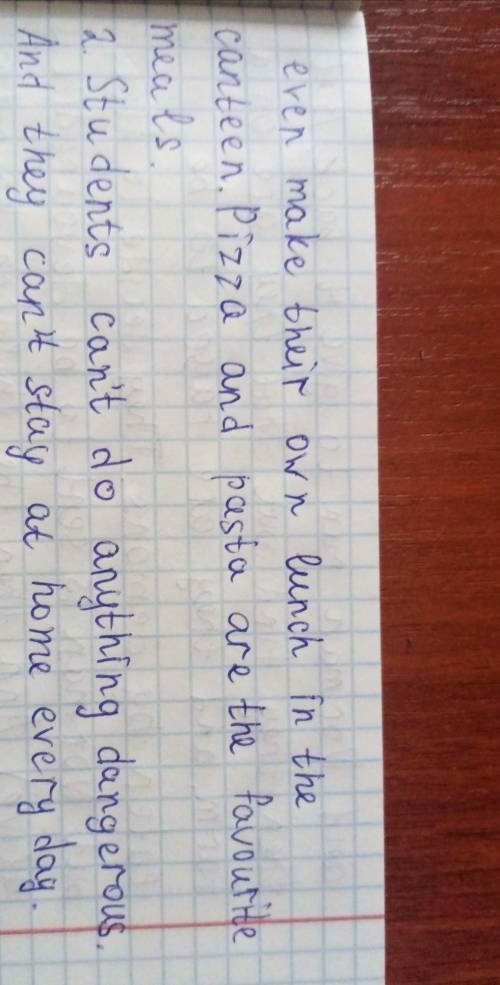 even make their own lunch in the
canteen. Pizza and pasta are the favourite
meals.
2. Students can't do anything dangerous.
And they can't stay at home every day.